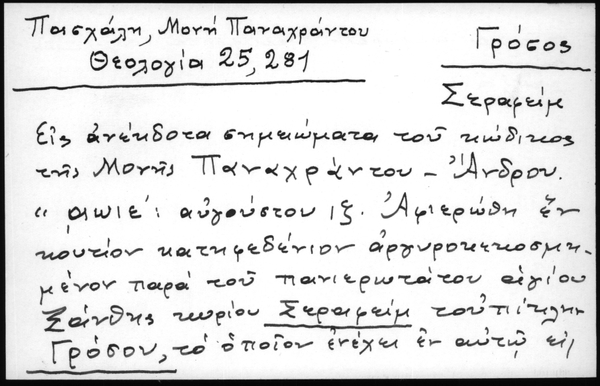 Πασχάλη, Μονή Παναχράντου
Θεολογία 25, 281
Γρόσος
Σεραφείμ
Εἰς ἀνέκδοτα σημειώματα τοῦ κώδικος
τῆς Μονῆς Παναχράντου - Ἄνδρου.
"αωιε': αὐγούστου ιξ. Ἀφιερώθη ἕν
κουτίον κατηφεδένιον ἀργυροκεκοσμη-
μένον παρά τοῦ πανιερωτάτου ἁγίου
Ξάνθης κυρίου Σεραφείμ τοὐπίκλην
Γρόσου, τό ὁποῖον ἐνέχει ἐν αὐτῷ εἰς